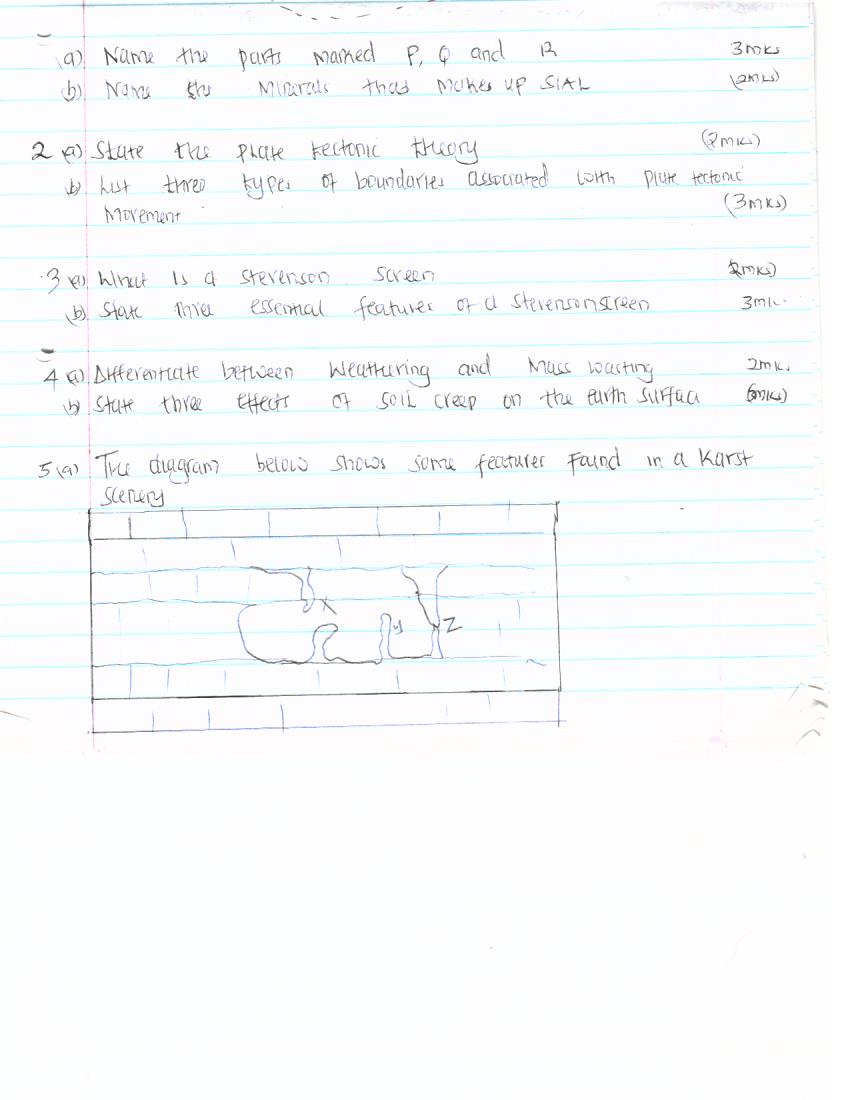 a) Name the parts marked P, Q and R 3mks
b) Name the Minerals that makes up SIAL (2mks)
2 a) State the plate tectonic theory (2mks)
b) List three types of boundaries associated with plate tectonic
Movement (3mks)
3 a) What is a stevenson screen (2mks)
(b) State three essential features of a stevenson screen 3mk.
4 a) Differentiate between Weathering and Mass wasting 2mks
b) State three effects of soil creep on the earth surface (3mks)
5 (a) The diagram below shows some features found in a Karst
scenery
X
y
Z